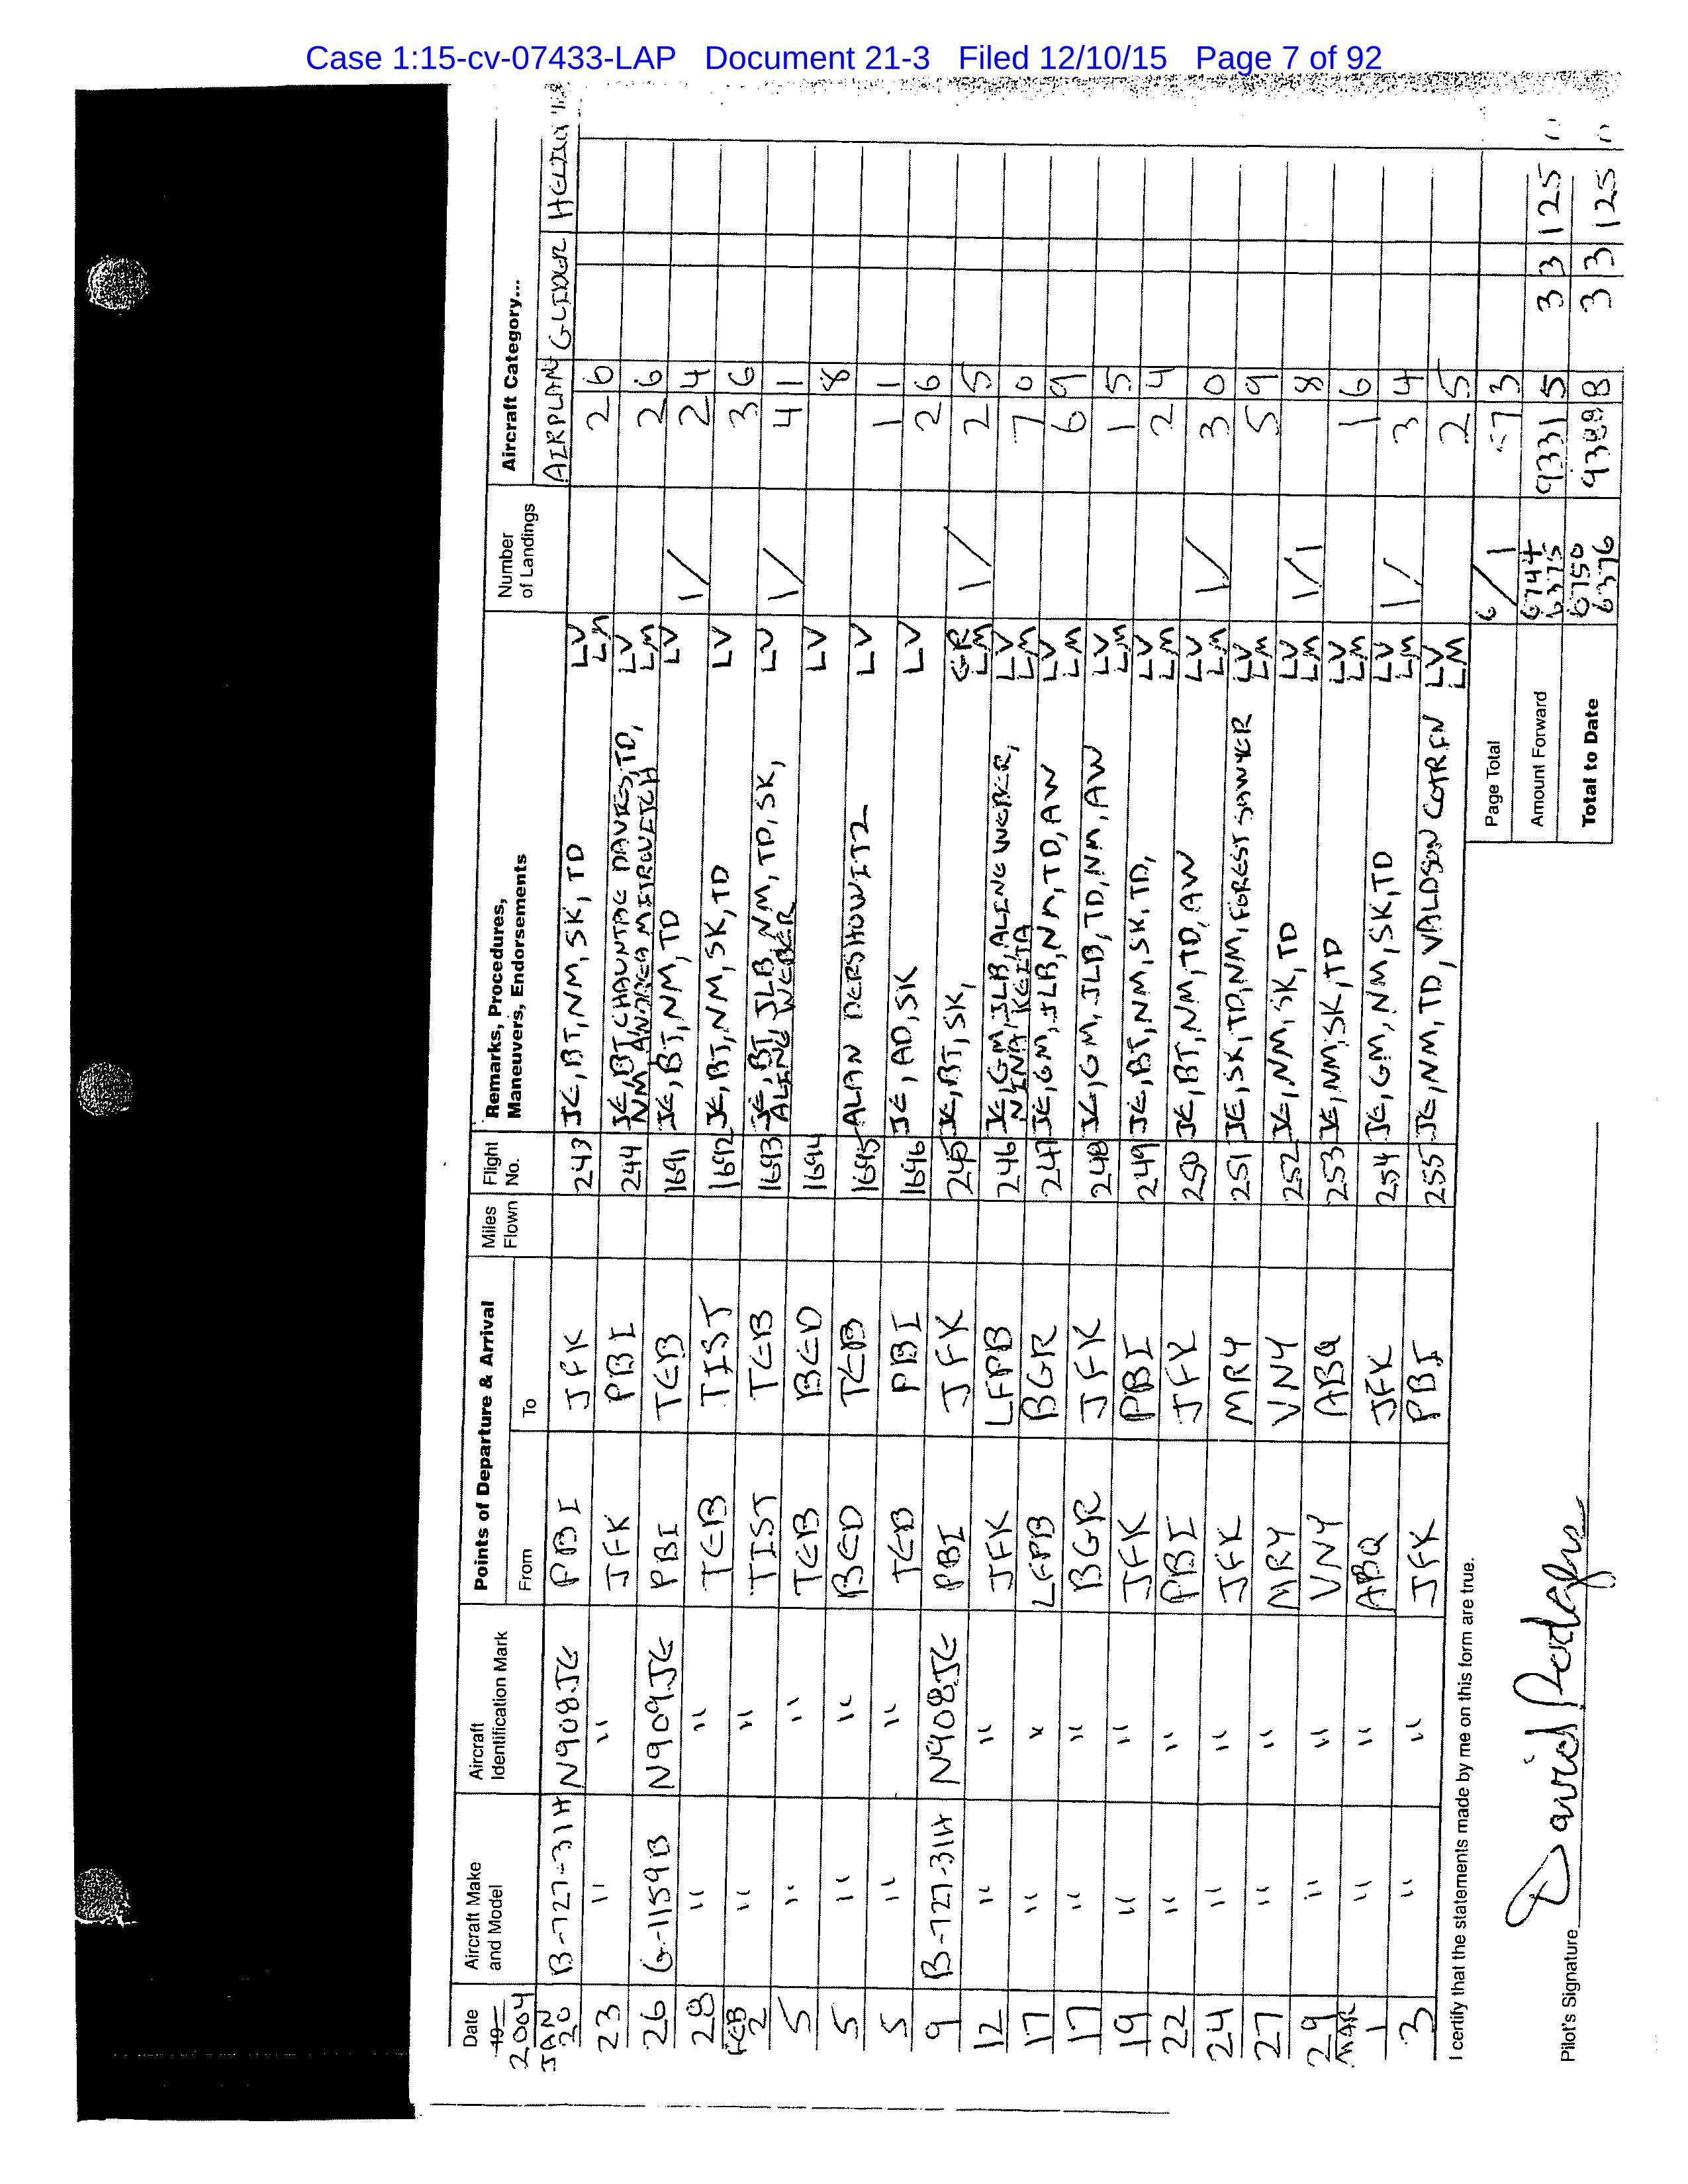 Case 1:15-cv-07433-LAP Document 21-3 Filed 12/10/15 Page 7 of 92
Date Aircraft Make and Model Aircraft Identification Mark Points of Departure & Arrival Miles Flown Flight No. Remarks, Procedures, Maneuvers, Endorsements Number of Landings Aircraft Category...
19 2004 From To AIRPLANE GLIDER
JAN 20 B-727-31H N908JE PBI JFK 243 JE, BT, NM, SK, TD LV LM 2 6
23 " " JFK PBI 244 JE, BT, CHAUNTAE DAVIES, TD, NM, ANDREA MITROVITCH LV LM 2 6
26 G-1159B N909JE PBI TEB 1691 JE, BT, NM, TD LV 1/ 2 4
28 " " TEB TIST 1692 JE, BT, NM, SK, TD LV 3 6
FEB 2 " " TIST TEB 1693 JE, BT, JLB, NM, TD, SK, ALINE WEBER LV 1/ 4 1
5 " " TEB BED 1694 LV 8
5 " " BED TEB 1695 ALAN DERSHOWITZ LV 1 1
5 " " TEB PBI 1696 JE, AD, SK LV 2 6
9 B-727-31H N908JE PBI JFK 245 JE, BT, SK, GR LM 1/ 2 5
12 " " JFK LFPB 246 JE, GM, JLB, ALINE WEBER, NINA KEITA LV LM 7 0
17 " " LFPB BGR 247 JE, GM, JLB, NM, TD, AW LV LM 6 9
17 " " BGR JFK 248 JE, GM, JLB, TD, NM, AW LV LM 1 5
19 " " JFK PBI 249 JE, BT, NM, SK, TD, LV LM 2 4
22 " " PBI JFK 250 JE, BT, NM, TD, AW LV LM 1/ 3 0
24 " " JFK MRY 251 JE, SK, TD, NM, FOREST SAWYER LV LM 5 9
27 " " MRY VNY 252 JE, NM, SK, TD LV LM 1/1 8
29 " " VNY ABQ 253 JE, NM, SK, TD LV LM 1 6
MAR 1 " " ABQ JFK 254 JE, GM, NM, SK, TD LV LM 1/ 3 4
3 " " JFK PBI 255 JE, NM, TD, VALDSON COTRIN LV LM 2 5
I certify that the statements made by me on this form are true.
Page Total 6/1 57 3
Amount Forward 6744 6375 9331 5 3 3 125 "
Total to Date 6750 6376 9388 8 3 3 125 "
Pilot's Signature David Rodgers